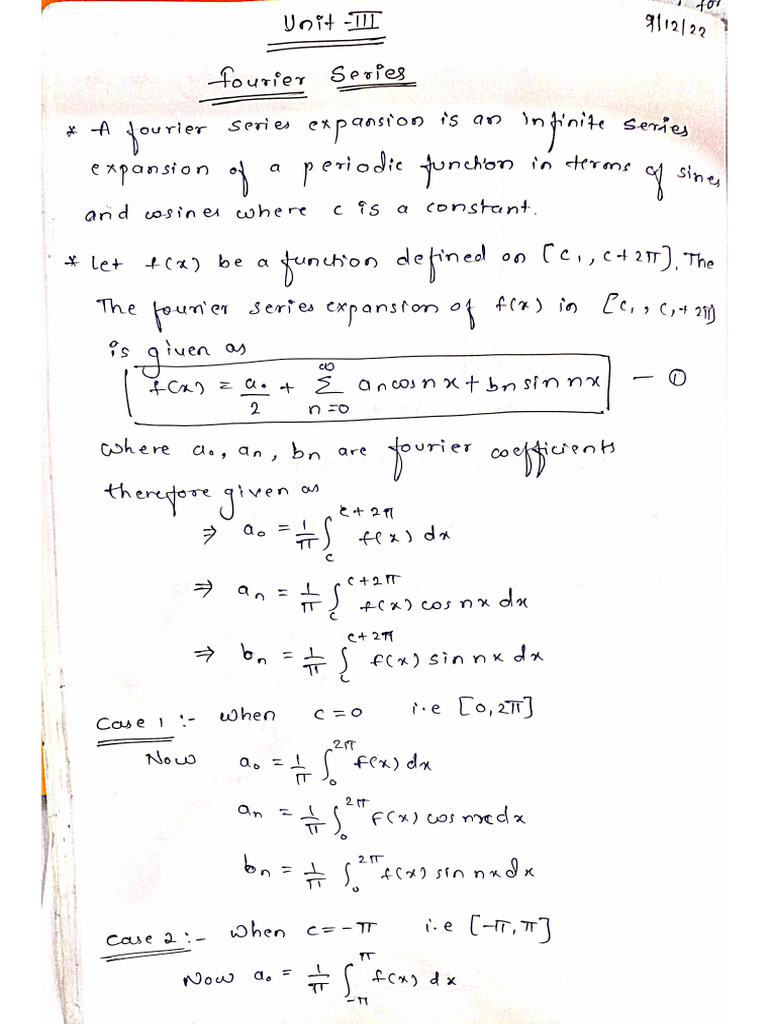 for
Unit-III
9/12/22
Fourier Series
* A fourier series expansion is an infinite series
expansion of a periodic function in terms of sines
and cosines where c is a constant.
* Let f(x) be a function defined on [c, , c+2π]. The
The fourier series expansion of f(x) in [c, , c,+2π]
is given as
f(x) = a₀/2 + ∞Σn=0 an cos nx + bn sin nx — ①
where a₀, an, bn are fourier coefficients
therefore given as
⇒ a₀ = 1/π ∫c^c+2π f(x) dx
⇒ an = 1/π ∫c^c+2π f(x) cos nx dx
⇒ bn = 1/π ∫c^c+2π f(x) sin nx dx
Case 1 :- when c=0 i.e [0,2π]
Now a₀ = 1/π ∫0^2π f(x) dx
an = 1/π ∫0^2π f(x) cos nx dx
bn = 1/π ∫0^2π f(x) sin nx dx
Case 2 :- when c=-π i.e [-π,π]
Now a₀ = 1/π ∫-π^π f(x) dx